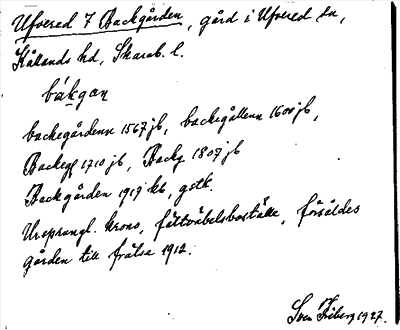 Ufvered 7 Backgården, gård i Ufvered sn,
Kållands hd, Skarab. l.
båkgan
backegårdenn 1567 jb, backegållenn 1600 jb,
Backeg 1710 jb, Backg 1807 jb
Backgården 1919 kb, gstk.
Ursprungl. krono, fältväbelsboställe, försåldes
gården till frälse 1912.
Sven Friberg 1927.